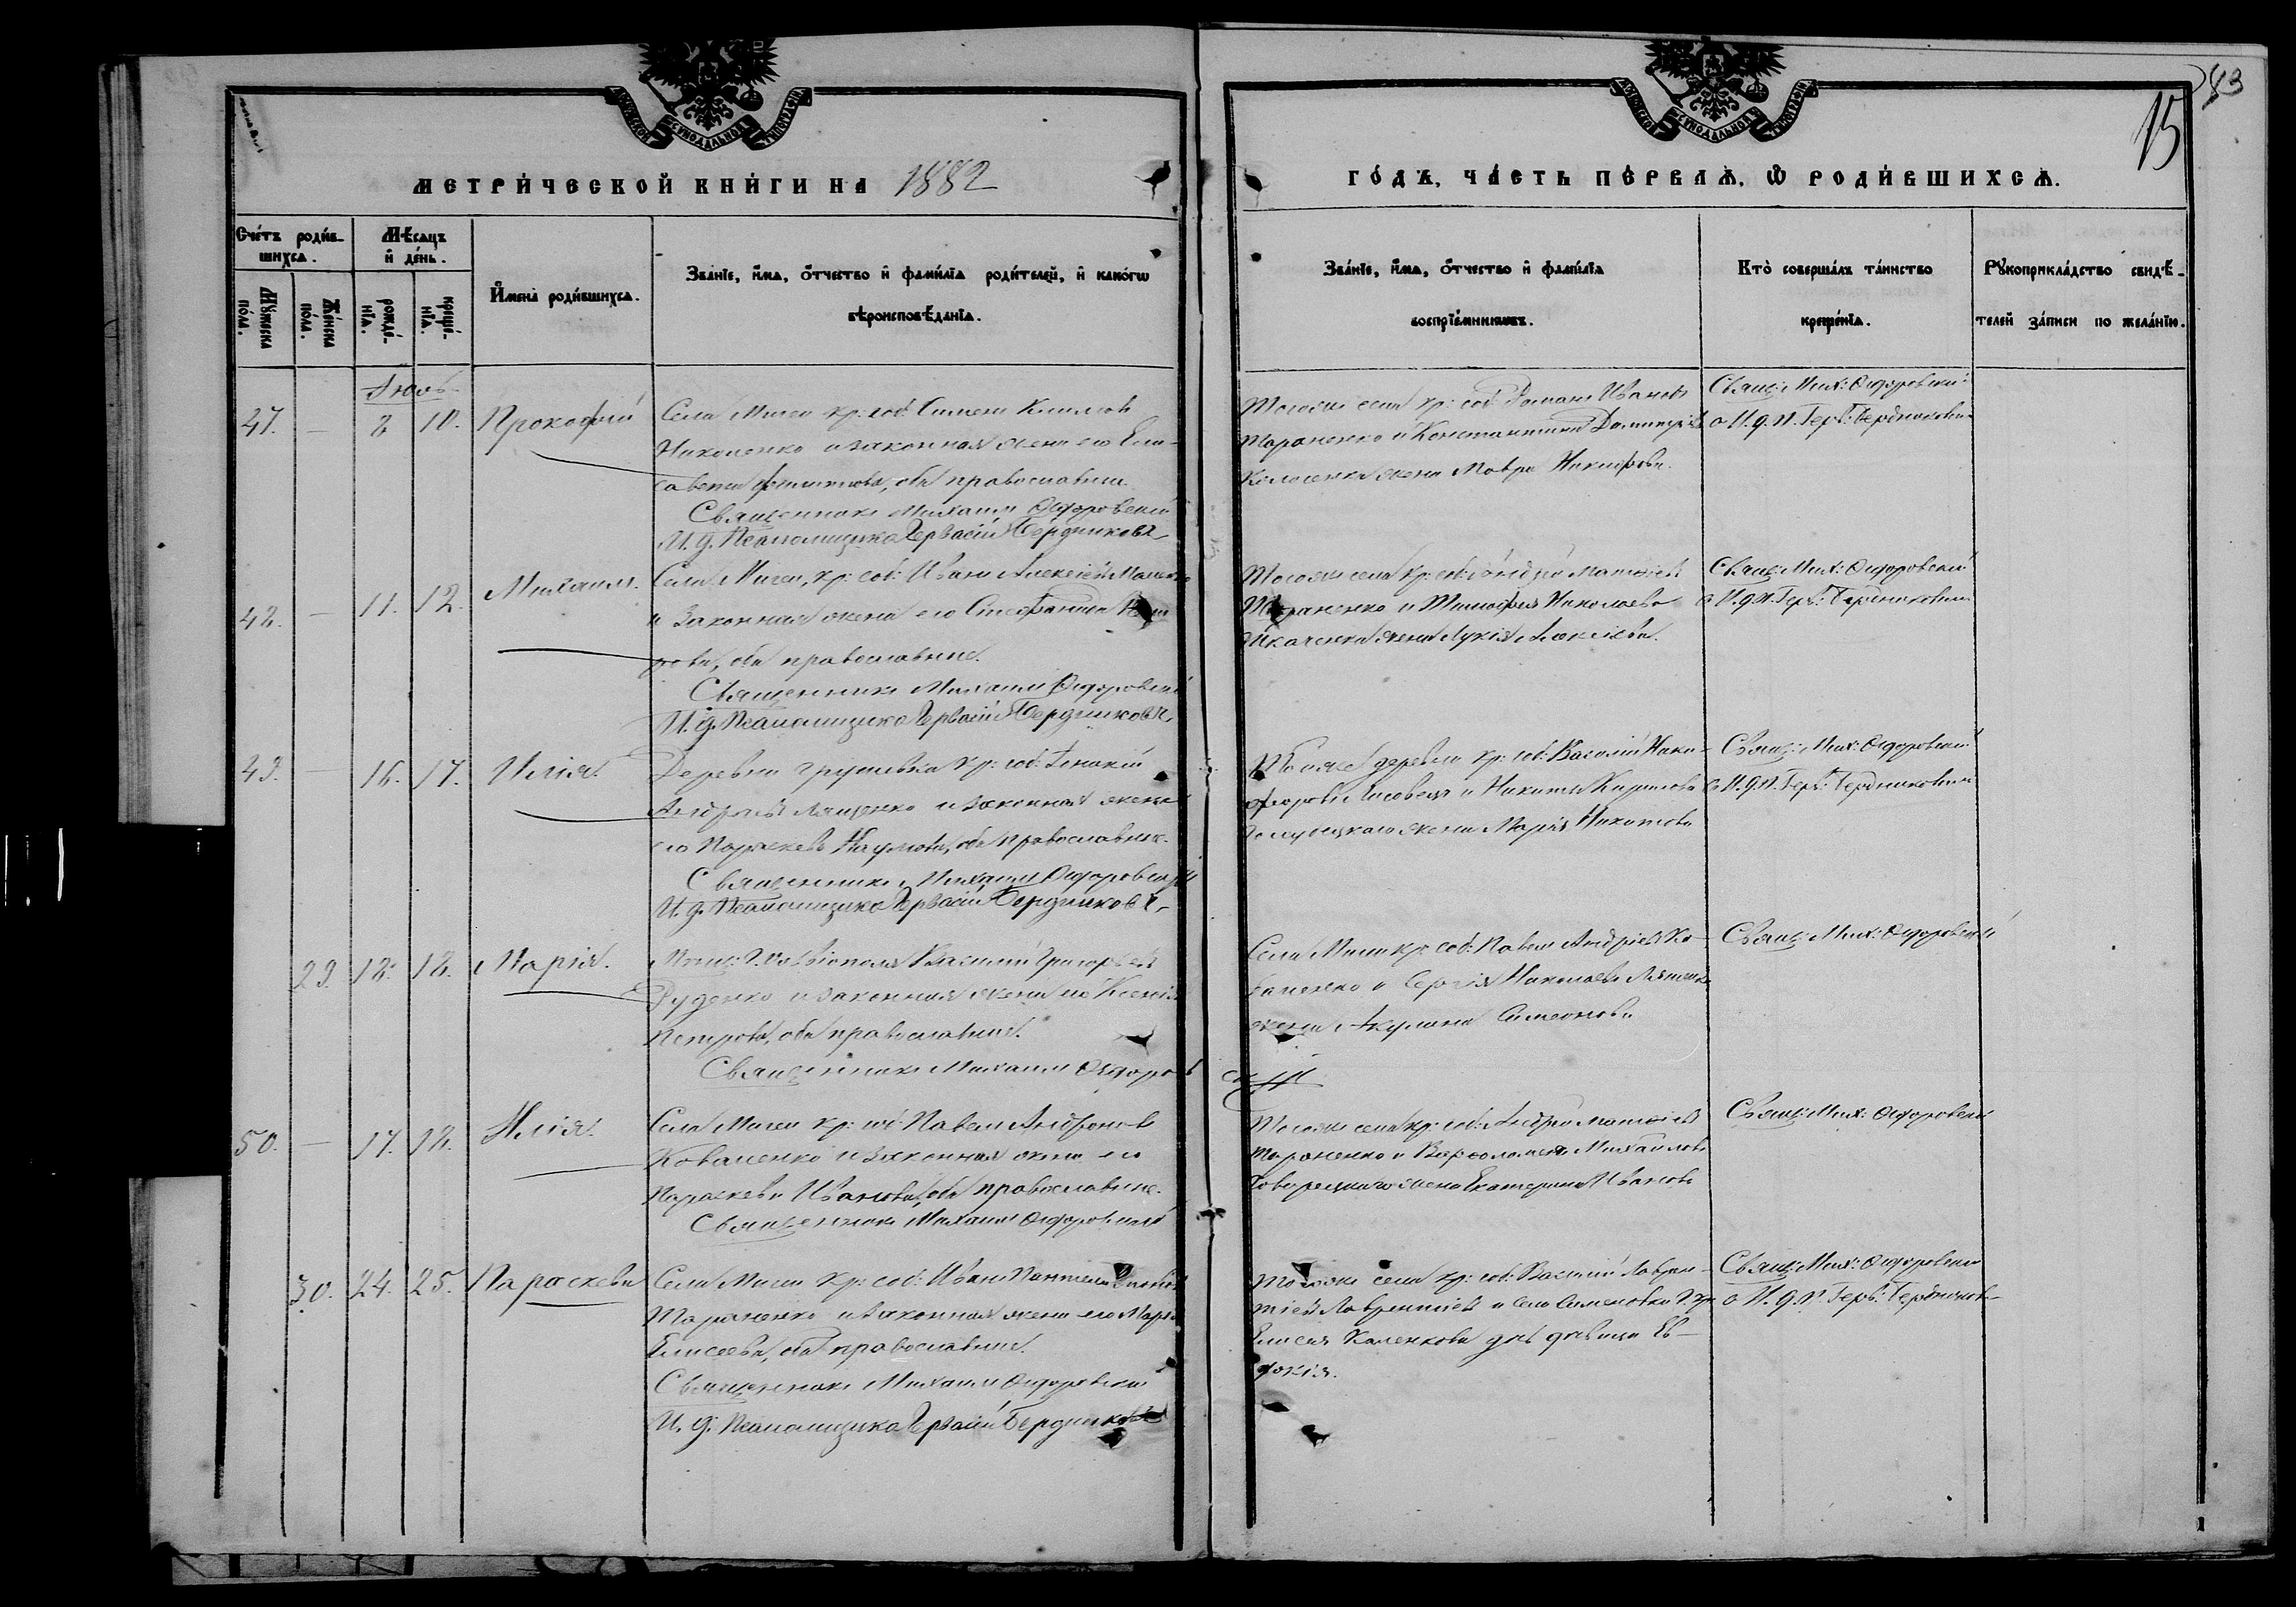 83
15
МЕТРИ́ЧЕСКОЙ КНИ́ГИ НА 1882
ГО́ДЪ, ЧА́СТЬ ПЕ́РВАѦ, Ѿ РОДИ́ВШИХСѦ.
Сче́тъ роди́в-
шихсѧ.
Мѣ́сѧцъ
и де́нь.
Мꙋ́жеска по́ла.
Же́нска по́ла.
рожде́-
нїѧ.
креще́-
нїѧ.
Имена̀ роди́вшихсѧ.
Зва́нїе, и́мѧ, ѻ́тчество и фами́лїѧ роди́телей, и како́гѡ
вѣроисповѣ́данїѧ.
Зва́нїе, и́мѧ, ѻ́тчество и фами́лїѧ
воспрїе́мникѡвъ.
Кто̀ соверша́лъ та́инство
креще́нїѧ.
Рꙋкоприкла́дство свидѣ́-
телей за́писи по жела́нїю.
47. — 8 10. Прокофій
Села Мигеи кр: соб:
и законная жена его Ели-
савета, оба православные
Священникъ Михаилъ Ѳедоровскій
И. д. Псаломщика Гервасій Бердниковъ
Тогоже села кр: соб: Романъ Ивановъ
Тараненко и Константина Димитріева
жена Мавра Никифорова.
Свящ: Мих: Ѳедоровскій
с И. д. п. Герв: Бердниковымъ
48. — 11. 12. Михаилъ.
Села Мигеи, кр: соб: Иванъ Алексіевъ
и законная жена его Стефанида
оба православные.
Священникъ Михаилъ Ѳедоровскій
И. д. Псаломщика Гервасій Бердниковъ
Тогоже села кр: соб: Андрей Матѳіевъ
Тараненко и Тимофея Николаева
Ткаченка жена Лукія Алексіева.
Свящ: Мих: Ѳедоровскій
с И. д. п. Герв: Бердниковымъ
49. — 16. 17. Илія.
Деревни Грушевки кр: соб:
Ляшенко и законная жена
его Параскева Наумова, оба православные.
Священникъ Михаилъ Ѳедоровскій
И. д. Псаломщика Гервасій Бердниковъ
Тойже деревни кр: соб: Василій Ники-
форовъ Лисовецъ и Никиты Кирилова
жена Марія Никитова
Свящ: Мих: Ѳедоровскій
с И. д. п. Герв: Бердниковымъ
29. 18. 18. Марія.
Василій Григорьевъ
Руденко и законная жена его Ксенія
Петрова, оба православные.
Священникъ Михаилъ Ѳедоров
скій
Села Мигеи кр: соб: Павелъ Андріевъ Ко-
валенко и Сергія Николаева
жена Акулина Симеонова
Свящ: Мих: Ѳедоровскій
50. — 17. 18. Илія.
Села Мигеи кр: соб: Павелъ Андроновъ
Коваленко и законная жена его
Параскева Иванова, оба православные.
Священникъ Михаилъ Ѳедоровскій
Тогоже села кр: соб: Андрей Матѳіевъ
Тараненко и Варѳоломея Михайлова
жена Екатерина Иванова
Свящ: Мих: Ѳедоровскій
30. 24. 25. Параскева
Села Мигеи кр: соб: Иванъ Пантелеймоновъ
Тараненко и законная жена его Марія
Елисеева, оба православные.
Священникъ Михаилъ Ѳедоровскій
И. д. Псаломщика Гервасій Бердниковъ
Тогоже села кр: соб: Василій Лаврен-
тіевъ Лаврентіевъ и села Семеновки
Елисея дочь дѣвица Ев-
докія.
Свящ: Мих: Ѳедоровскій
с И. д. п. Герв: Бердниковъ